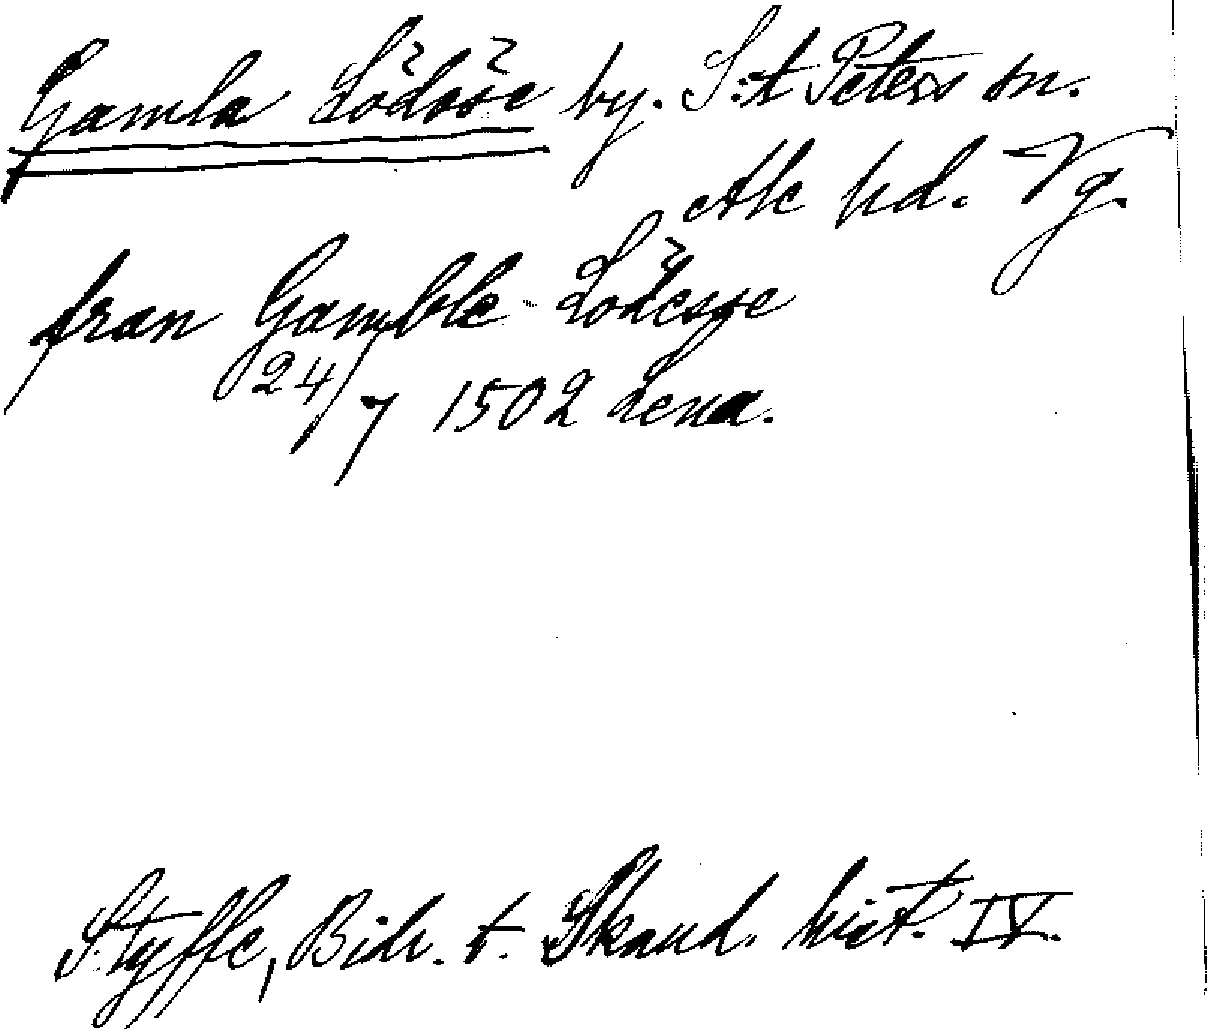 Gamla Lödöse by. S:t Peters sn.
Ale hd. Vg.
fran Gamble-Lödesøe
24/7 1502 Lena.
Styffe, Bidr. t. Skand. hist. IV.